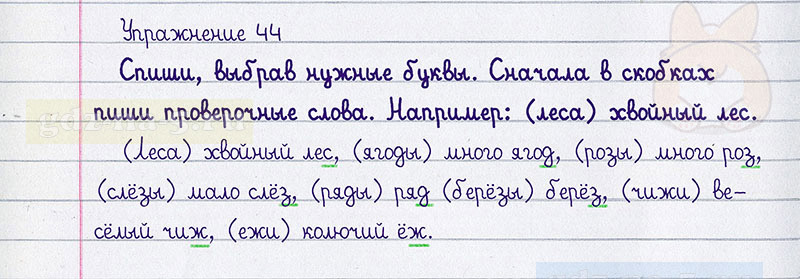 Упражнение 44
Спиши, выбрав нужные буквы. Сначала в скобках
пиши проверочные слова. Например: (леса) хвойный лес.
(Леса) хвойный лес, (ягоды) много ягод, (розы) много роз,
(слёзы) мало слёз, (ряды) ряд (берёзы) берёз, (чижи) ве-
сёлый чиж, (ежи) колючий ёж.